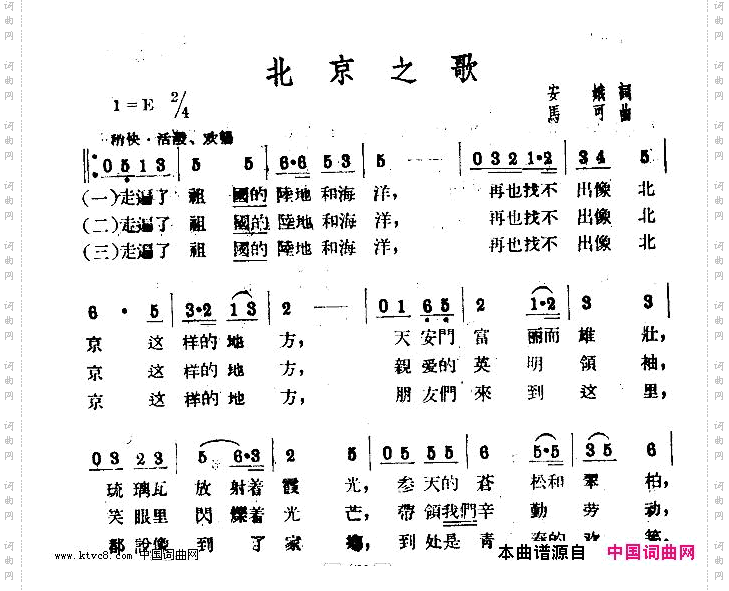 北京之歌
1=E 2/4
安娥 詞
馬可 曲
稍快·活潑、欢暢
0 5 1 3 | 5 5 | 6·6 5 3 | 5 — | 0 3 2 1·2 | 3 4 5 |
(一)走遍了 祖 國的 陸地 和海 洋, 再也找不 出像 北
(二)走遍了 祖 國的 陸地 和海 洋, 再也找不 出像 北
(三)走遍了 祖 國的 陸地 和海 洋, 再也找不 出像 北
6· 5 | 3·2 1 3 | 2 — | 0 1 6 5 | 2 1·2 | 3 3 |
京 这 样的 地 方, 天 安門 富 丽而 雄 壯,
京 这 样的 地 方, 親 愛的 英 明 領 袖,
京 这 样的 地 方, 朋 友們 來 到 这 里,
0 3 2 3 | 5 6·3 | 2 5 | 0 5 5 5 | 6 5·5 | 3 5 6 |
琉 璃瓦 放 射着 霞 光, 参 天的 蒼 松和 翠 柏,
笑 眼里 閃 爍着 光 芒, 帶 領我們 辛 勤 劳 动,
都 說像 到 了 家 鄉, 到 处是 青 春的 欢
www.ktvc8.com 中国词曲网
本曲谱源自 中国词曲网
词曲网